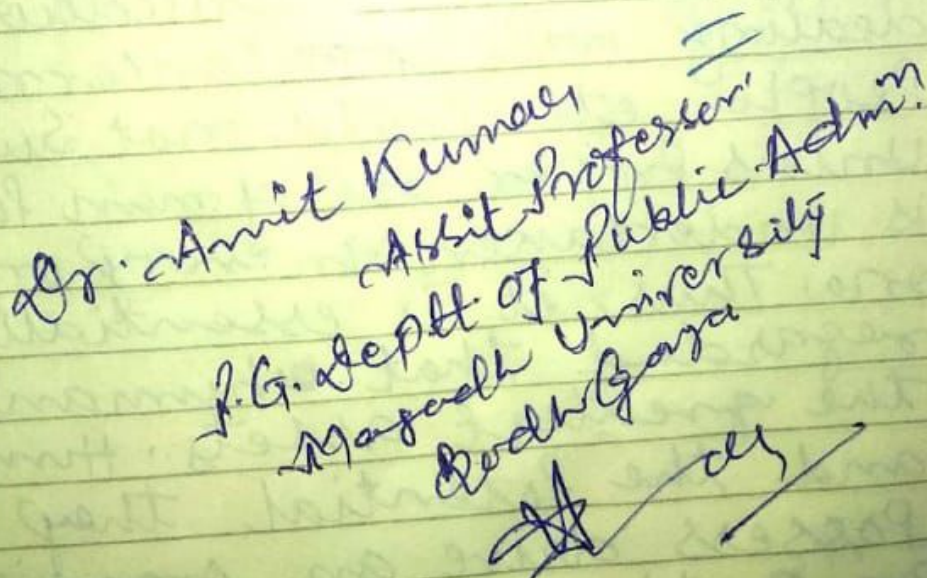 Dr. Amit Kumar
Assit Professor
P.G. Deptt. of Public Admn.
Magadh University
Bodh Gaya